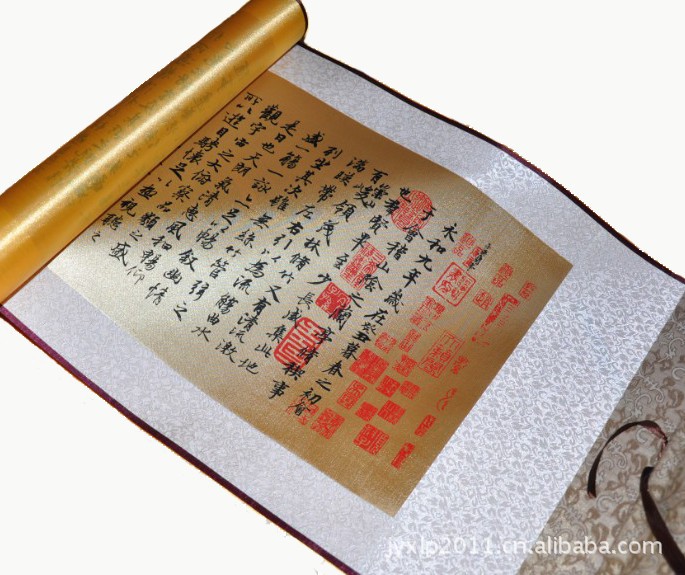 永和九年歲在癸丑暮春之初會
于會稽山陰之蘭亭脩禊事
也羣賢畢至少長咸集此地
有崇山峻領茂林脩竹又有清流激
湍暎帶左右引以為流觴曲水
列坐其次雖無絲竹管弦之
盛一觴一詠亦足以暢敘幽情
是日也天朗氣清惠風和暢仰
觀宇宙之大俯察品類之盛
所以遊目騁懷足以極視聽之
jyxlp2011.cn.alibaba.com